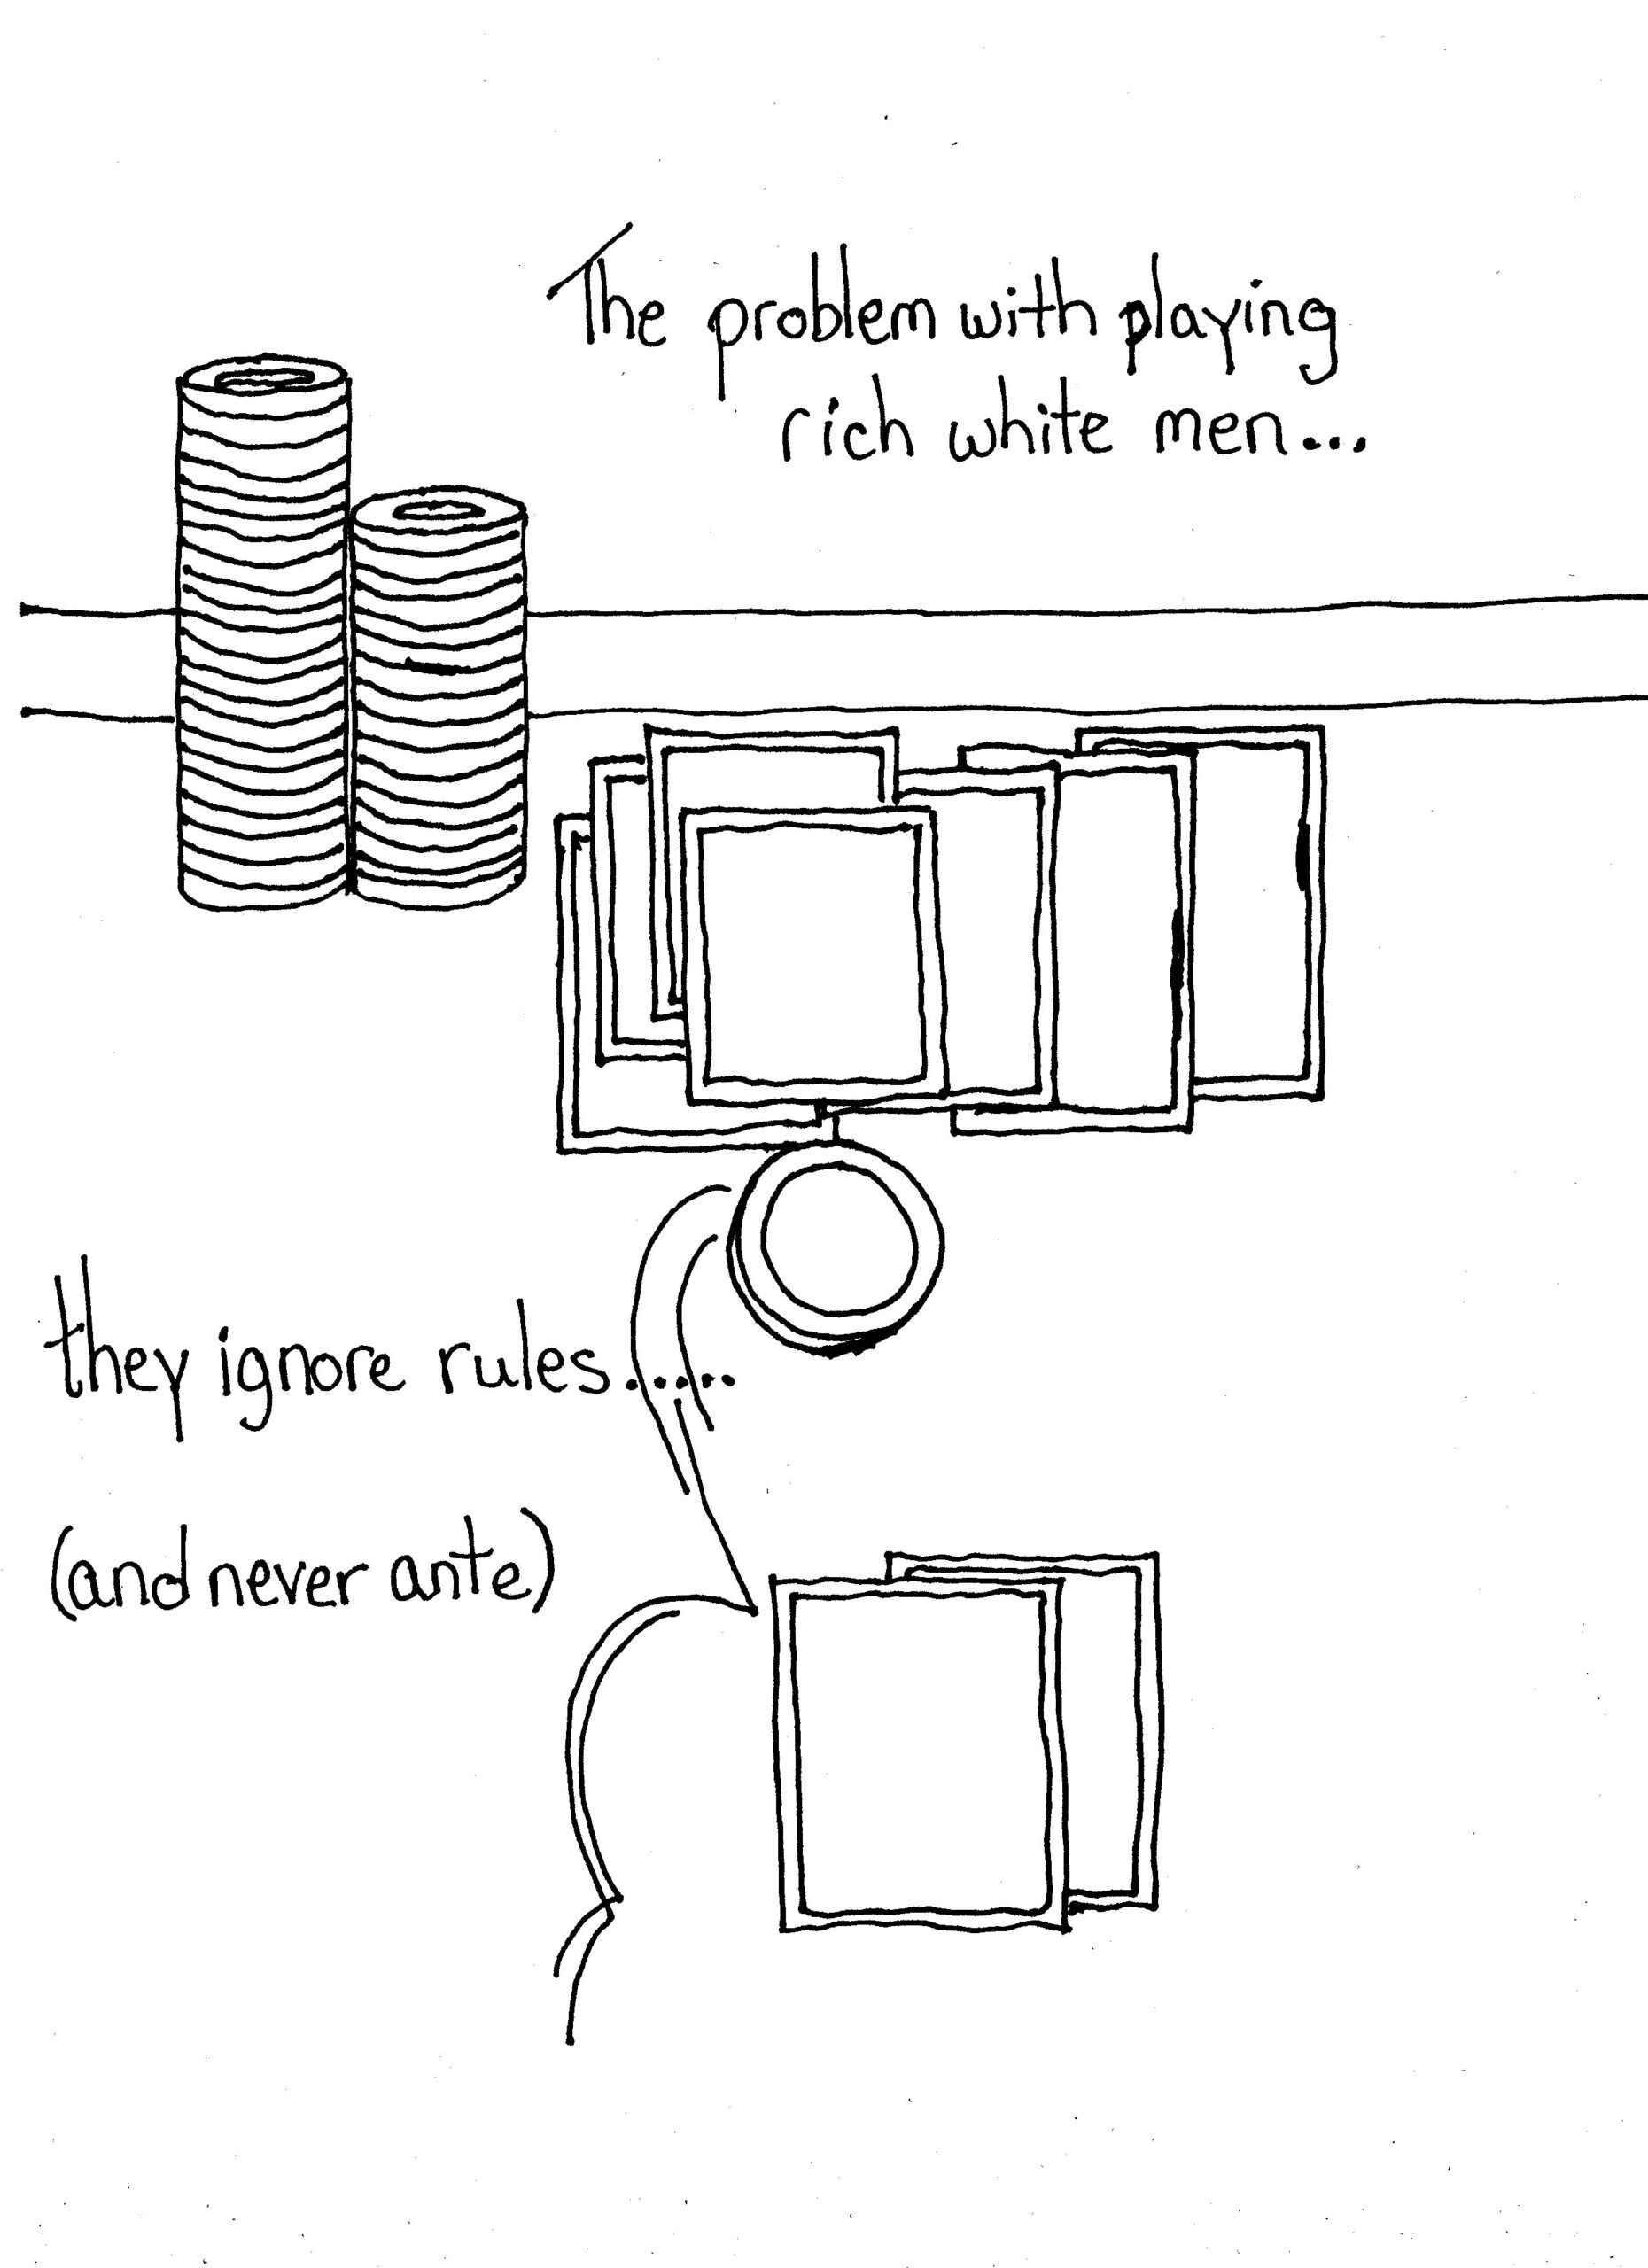 The problem with playing
rich white men...
they ignore rules.....
(and never ante)